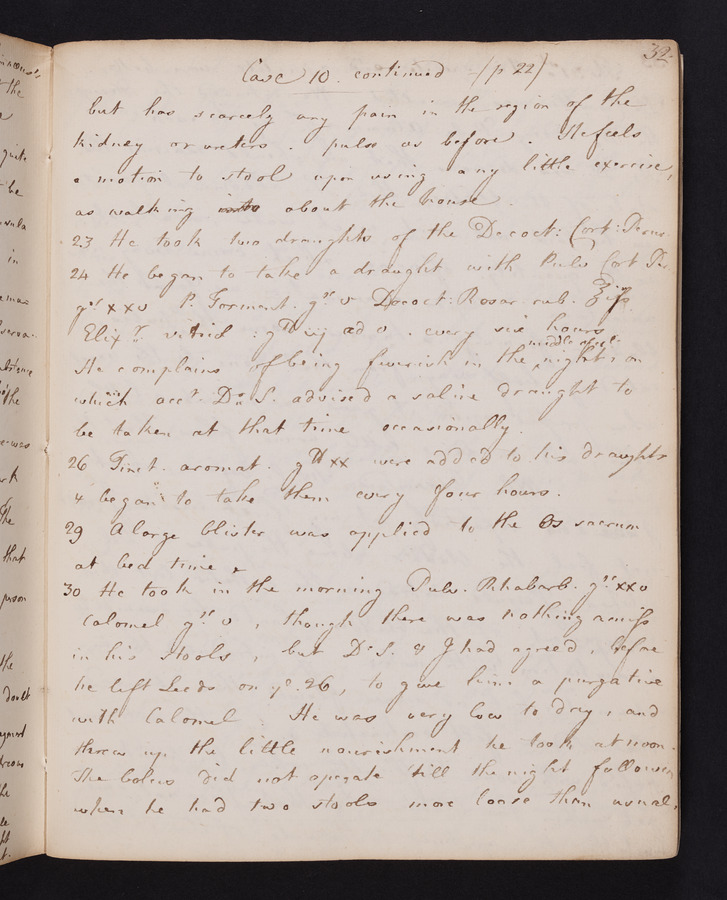 32.
Case 10. continued (p 22)
but has scarcely any pain in the region of the
kidney or ureters. pulse as before. He feels
a motion to stool upon using any little exercise,
as walking about the house.
23 He took two draughts of the Decoct: Cort: Peruv.
24 He began to take a draught with Pulv Cort Per
grs xxv P. Torment. grs v Decoct: Rosar rub. ℥iss
Elixr vitriol: gtt iij ad v. every six hours
He complains of being feverish in the middle of the nights on
which acct Dr S. advised a saline draught to
be taken at that time occasionally.
26 Tinct. aromat. gtt xx were added to his draughts
& began to take them every four hours.
29 A large blister was applied to the Os sacrum
at bed time
30 He took in the morning Pulv. Rhabarb. grs xxv
Calomel grs v, though there was nothing amiss
in his stools, but Dr S. & I had agreed, before
he left Leeds on ye 26, to give him a purgative
with Calomel. He was very low to day, and
threw up the little nourishment he took at noon.
The bolus did not operate 'till the night following
when he had two stools more loose than usual,